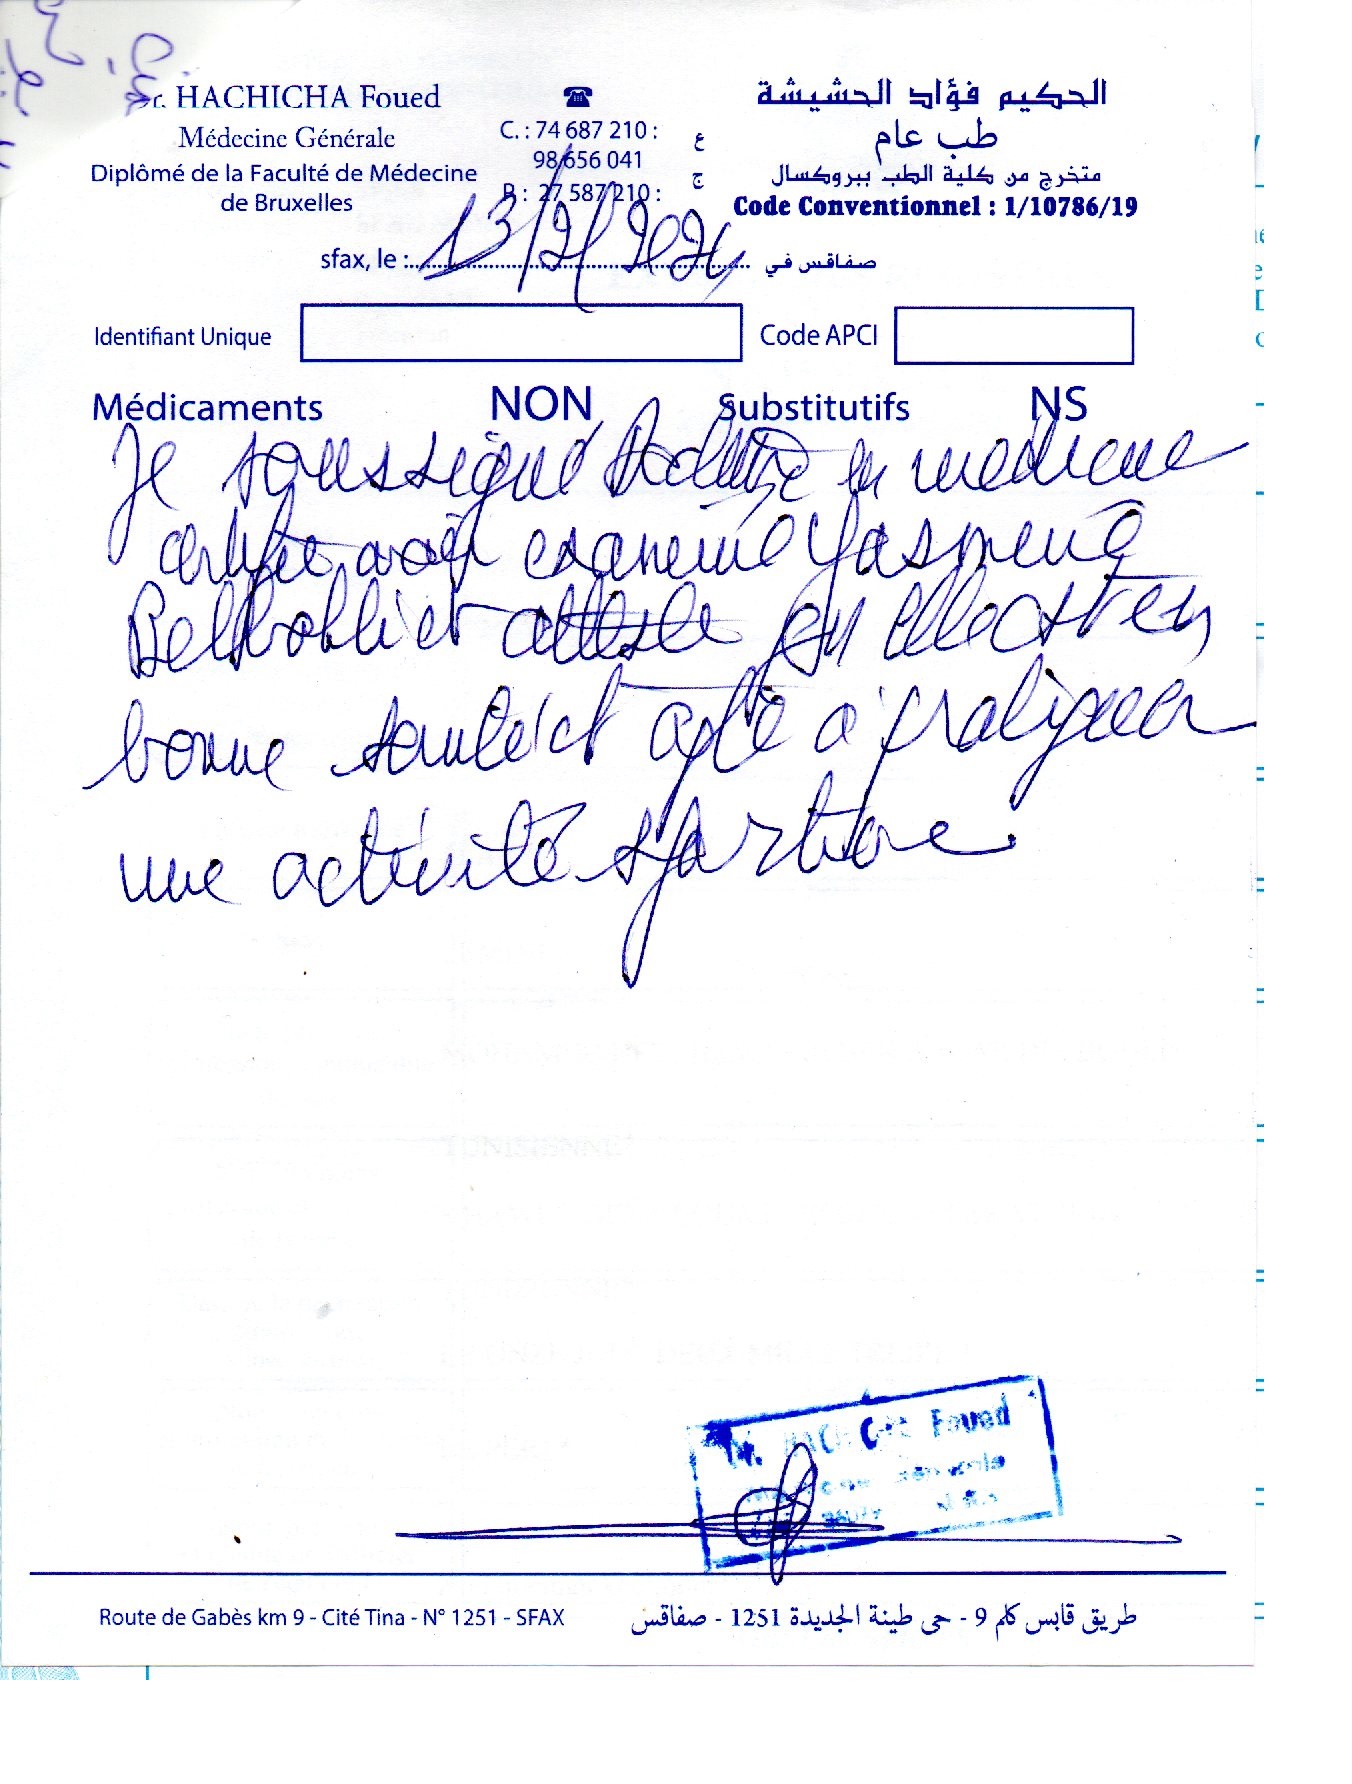 r. HACHICHA Foued
Médecine Générale
Diplômé de la Faculté de Médecine
de Bruxelles
☎
C. : 74 687 210 : ع
98 656 041
P : 27 587 210 : ج
الحكيم فؤاد الحشيشة
طب عام
متخرج من كلية الطب ببروكسال
Code Conventionnel : 1/10786/19
sfax, le : 13/2/2024 صفاقس في
Identifiant Unique
Code APCI
Médicaments NON Substitutifs NS
Je soussigné en médecine
certifie avoir examiné Yasmine
et atteste qu'elle est en
bonne santé et apte à pratiquer
une activité sportive.
HACHICHA Foued
Route de Gabès km 9 - Cité Tina - N° 1251 - SFAX
طريق قابس كلم 9 - حي طينة الجديدة 1251 - صفاقس